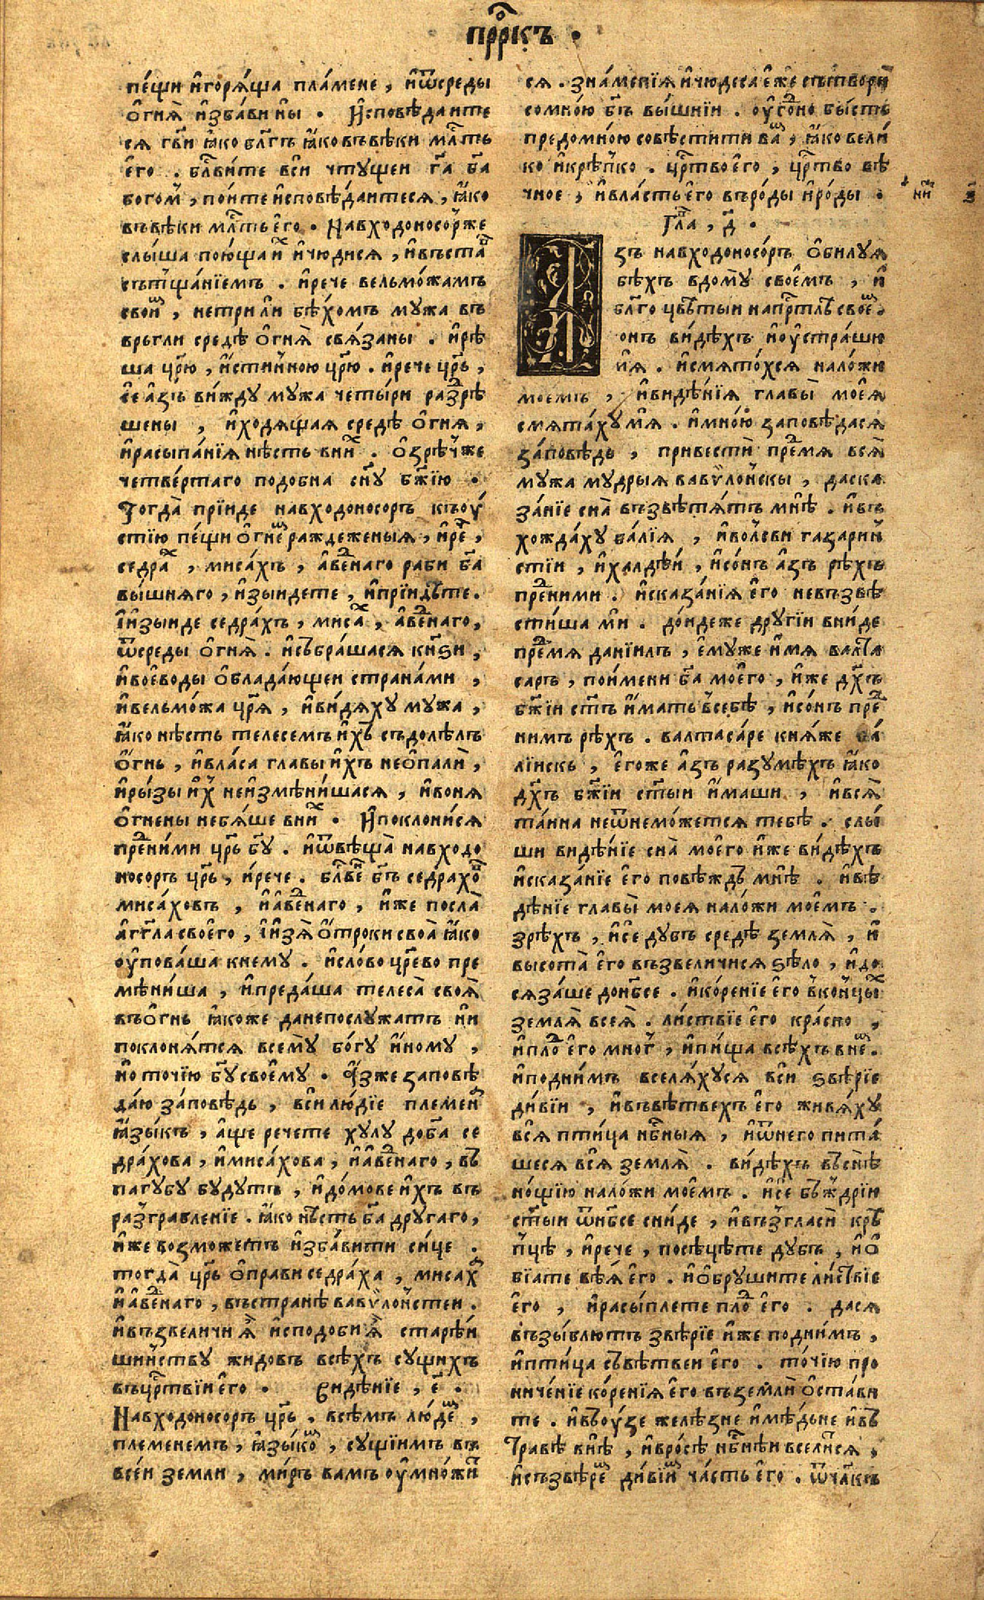 пррⷪ҇къ ·
пе́щи и҆горѧ́ща пла́мене , и҆ѿсреды
ѻ҆гнѧ̀ и҆зба́вины . И҆споведаите
сѧ гв҃и ꙗ҆ко бл҃гъ ꙗ҆ковъвѣки млⷭ҇ть
его̀ . бл҃вите вси чтущеи гⷭ҇а б҃а
богоⷨ , пои́те и҆споведаитесѧ , ꙗ҆ко
въвѣки млⷭ҇ть е҆го . Навходоносоⷬ҇же
слыша пою́ща и҆ⷯ и҆чюдисѧ , и҆въстаⷡ
сътщанїемъ . и҆рече вельможамъ
свои́ⷨ , нетри ли бѣ́хомъ мужа въ
вьргли средѣ ѻ҆гнѧ̀ свѧ́заны . и҆рѣ
ша цр҃ю , и҆стинною цр҃ю . и҆рече цр҃ь ,
се а҆́зъ ви́жду мужа четы́ри разⷣрѣ
шены , и҆ходѧщаѧ средѣ ѻ҆гнѧ ,
и҆расыпанїѧ нѣсть вниⷯ . ѻ҆зрѣⷱ҇же
четве́ртаго подобна сн҃у бж҃їю .
Тогда̀ прїиде навходоносоръ къоу҆
стїю пе́щи ѻ҆гнеⷩ раждеженыѧ , и҆реⷱ҇ ,
седраⷯ , миса́хъ , а҆вⷣенаго раби б҃а
вы́шнѧго , и҆зыидете , и҆прїидѣте .
І҆и҆зыиде седра́хъ , мисаⷯ , а҆вⷣенаго ,
ѿсреды ѻ҆гнѧ̀ . и҆събра́шасѧ кнѧ҃ѕи ,
и҆воево́ды ѻ҆блада́ющеи стра́нами ,
и҆вельмо́жа цр҃ѧ , и҆видѧху мужа ,
ꙗ҆ко нѣсть телесемъ и҆хъ съдолѣлъ
ѻ҆гнь , и҆вла́са главы и҆хъ неѻ҆пали ,
и҆ры́зы и҆ⷯ неи҆змѣни́шасѧ , и҆вонѧ
ѻ҆гнены небѧ́ше вниⷯ . И҆поклони́сѧ
преⷣними цр҃ь бг҃у . и҆ѿвѣща навходо
носоръ цр҃ь , и҆рече . бл҃ве́нъ бг҃ъ седрахоⷡ
миса́ховъ , и҆а҆вⷣенаго , и҆же посла̀
а҆гг҃ла своего , и҆и҆зѧ̀ ѻ҆́троки своѧ̀ ꙗ҆ко
оу҆пова́ша кнему . и҆слово цр҃ево пре
мѣни́ша , и҆преда́ша телеса̀ своѧ̀
въѻ҆гнь ꙗ҆коже данепослужатъ ни
поклонѧ́тсѧ всему бо́гу и҆ному ,
но точїю бг҃у своему . А҆зже заповѣ
да́ю за́повѣдь , вси лю́дїе племеⷩ
ꙗ҆зыкъ , а҆ще речете хулу доб҃а се
дра́хова , и҆миса́хова , и҆а҆вⷣенаго , въ
пагубу будутъ , и҆домове и҆хъ въ
разⷣгравленїе . ꙗ҆ко нѣсть б҃а дру́гаго ,
и҆же возможетъ и҆зба́вити сице .
тогда̀ цр҃ь ѻ҆прави седра́ха , мисаⷯ
и҆а҆вⷣенаго , въстранѣ вавѷло́нстеи .
и҆възвеличи ѧ҆̀ и҆сподоби ѧ҆̀ старѣи
шиньству жидовъ всѣхъ сущихъ
въцрⷭ҇твїи е҆го . Видѣнїе , є҃ .
Навходоносоръ цр҃ь . всѣмъ людеⷨ ,
племенемъ , ꙗ҆зы́коⷨ , сущїимъ въ
всеи земли , миръ вамъ оу҆мно́жиⷭ҇
сѧ . зна́менїѧ и҆чюдеса е҆́же сътвори
сомно́ю бг҃ъ вы́шнїи . оу҆гоⷣно бысть
предомною совѣстити ваⷨ , ꙗ҆ко вели
ко и҆крѣ́пко . црⷭ҇тво е҆го , црⷭ҇тво вѣ
чное , и҆вла́сть е҆го въро́ды и҆ро́ды .
Гла҃ , д҃ .
Азъ навходоносо́ръ ѻ҆билуѧ
бѣхъ вдому своемъ , и҆
бл҃го цвѣтыи напрⷭ҇тлѣ своеⷨ .
сонъ ви́дѣхъ и҆оу҆страши
мѧ . и҆смѧто́хсѧ наложи
моемъ , и҆виде́нїѧ главы̀ моеѧ
смѧта́ху мѧ . и҆мно́ю заповѣ́дасѧ
за́повѣдь , привестѝ преⷣмѧ всѧ̀
мужа мудрыѧ вавѷло́нскы , даска
за́нїе сна̀ възвѣстѧ́тъ мнѣ̀ . и҆въ
хожда́ху ва́лїѧ , и҆волсви газарин
стїи , и҆халдѣи , и҆со́нъ а҆зъ рѣхъ
преⷣними . и҆сказанїѧ е҆го невъзвѣ
сти́ша ми . до́ндеже другїи вни́де
преⷣмѧ данїилъ , е҆муже и҆мѧ валта
саръ , поимени б҃а моего , и҆же дх҃ъ
бж҃їи ст҃ъ и҆мать всебѣ̀ , и҆со́нъ преⷣ
нимъ рѣхъ . валтаса́ре кнѧже ва
лїискъ , е҆гоже а҆зъ разумѣхъ ꙗ҆ко
дх҃ъ бж҃їи ст҃ыи и҆́маши , и҆всѧ̀
та́ина неѿнеможетсѧ тебѣ̀ . слы
ши видѣнїе сна̀ моего и҆же ви́дѣхъ
и҆сказа́нїе е҆го повѣждъ мнѣ̀ . и҆вѣ
дѣнїе главы̀ моеѧ нало́жи моемъ .
зрѣхъ , и҆се дубъ средѣ̀ землѧ̀ , и҆
высота̀ е҆го възвеличисѧ ѕѣло , и҆до
сѧза́ше донб҃се . и҆ко́ренїе е҆го вконцыⷯ
землѧ̀ всеѧ̀ . ли́ствїе е҆го красно ,
и҆плоⷣ е҆го мноⷢ , и҆пи́ща всѣхъ внеⷨ .
и҆поднимъ вселѧхусѧ вси ѕвѣрїе
ди́вїи , и҆въвѣтвехъ е҆го живѧ́ху
всѧ̀ пти́ца нбⷭ҇ныѧ , и҆ѿнего пита́
шесѧ всѧ̀ землѧ̀ . ви́дѣхъ въснѣ̀
но́щїю нало́жи моемъ . и҆се бъждрїи
ст҃ыи ѿнб҃се сни́де , и҆възгласѝ крѣ
пцѣ , и҆рече , посѣцѣте дубъ , и҆ѻ҆
бїате вѣѧ̀ е҆го . и҆ѻ҆брушите ли́ствїе
е҆го , и҆расы́плете плоⷣ е҆го . дасѧ
възы́блютъ звѣрїе и҆же поднимъ ,
и҆пти́ца съвѣтвеи е҆го . то́чїю про
ниче́нїе коренїѧ е҆го въземли ѻ҆ста́ви
те . и҆въоу҆зе желѣзне и҆мѣ́дьне и҆въ
травѣ внѣ̀ , и҆вро́сѣ нбⷭ҇нѣи вселисѧ ,
и҆съзвѣреⷨ ди́вїиⷨ ча́сть е҆го . ѿчл҃къ